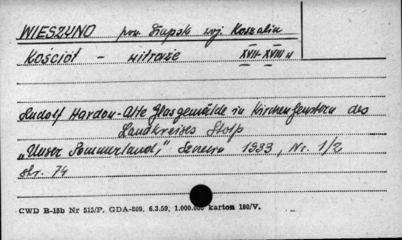 WIESZYNO pow. Słupsk woj. Koszalin
Kościół - witraże XVII-XVIII w
Rudolf Hardow - Alte Glasgemälde in Kirchenfenstern des
Landkreises Stolp
„Unser Pommerland," 1933, Nr. 1/2
str. 74
CWD B-15b Nr 515/P, GDA-809, 6.3.59, 1.000.000 karton 180/V.